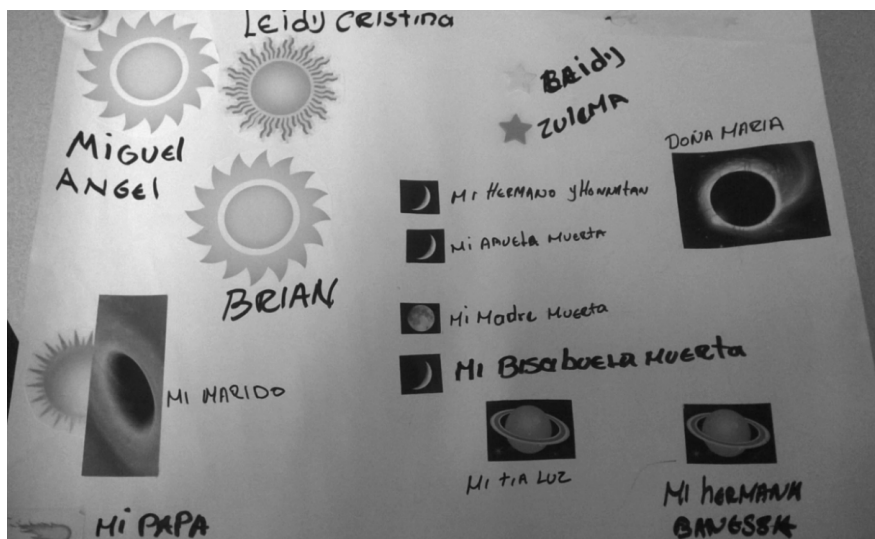 LEidy CRistina
MiGUEl
ANGEl
BRIAN
BREidy
ZULEMA
DOÑA MARIA
Mi HERMANO yHONNATAN
Mi ABUELA MUERTA
Mi MadRE MUERTA
Mi BisabuELA MUERTA
Mi MARIDO
Mi tiA LUZ
Mi hERMANA
BANESSA
Mi PAPA